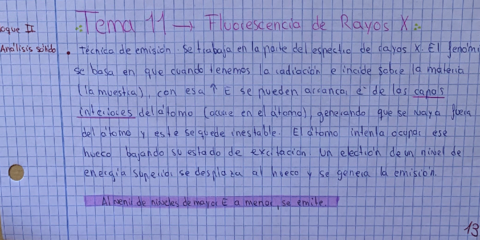 oque II
:Tema 11 → Fluorescencia de Rayos X:
Análisis sólido
• Técnica de emisión. Se trabaja en la parte del espectro de rayos X. El fenóm
se basa en que cuando tenemos la radiación e incide sobre la materia
(la muestra), con esa ↑ E se pueden arrancar e⁻ de las capas
interiores del átomo (ocurre en el átomo), generando que se vaya fuera
del átomo y este se quede inestable. El átomo intenta ocupar ese
hueco bajando su estado de excitación. Un electrón de un nivel de
energía superior se desplaza al hueco y se genera la emisión.
Al venir de niveles de mayor E a menor, se emite.
13